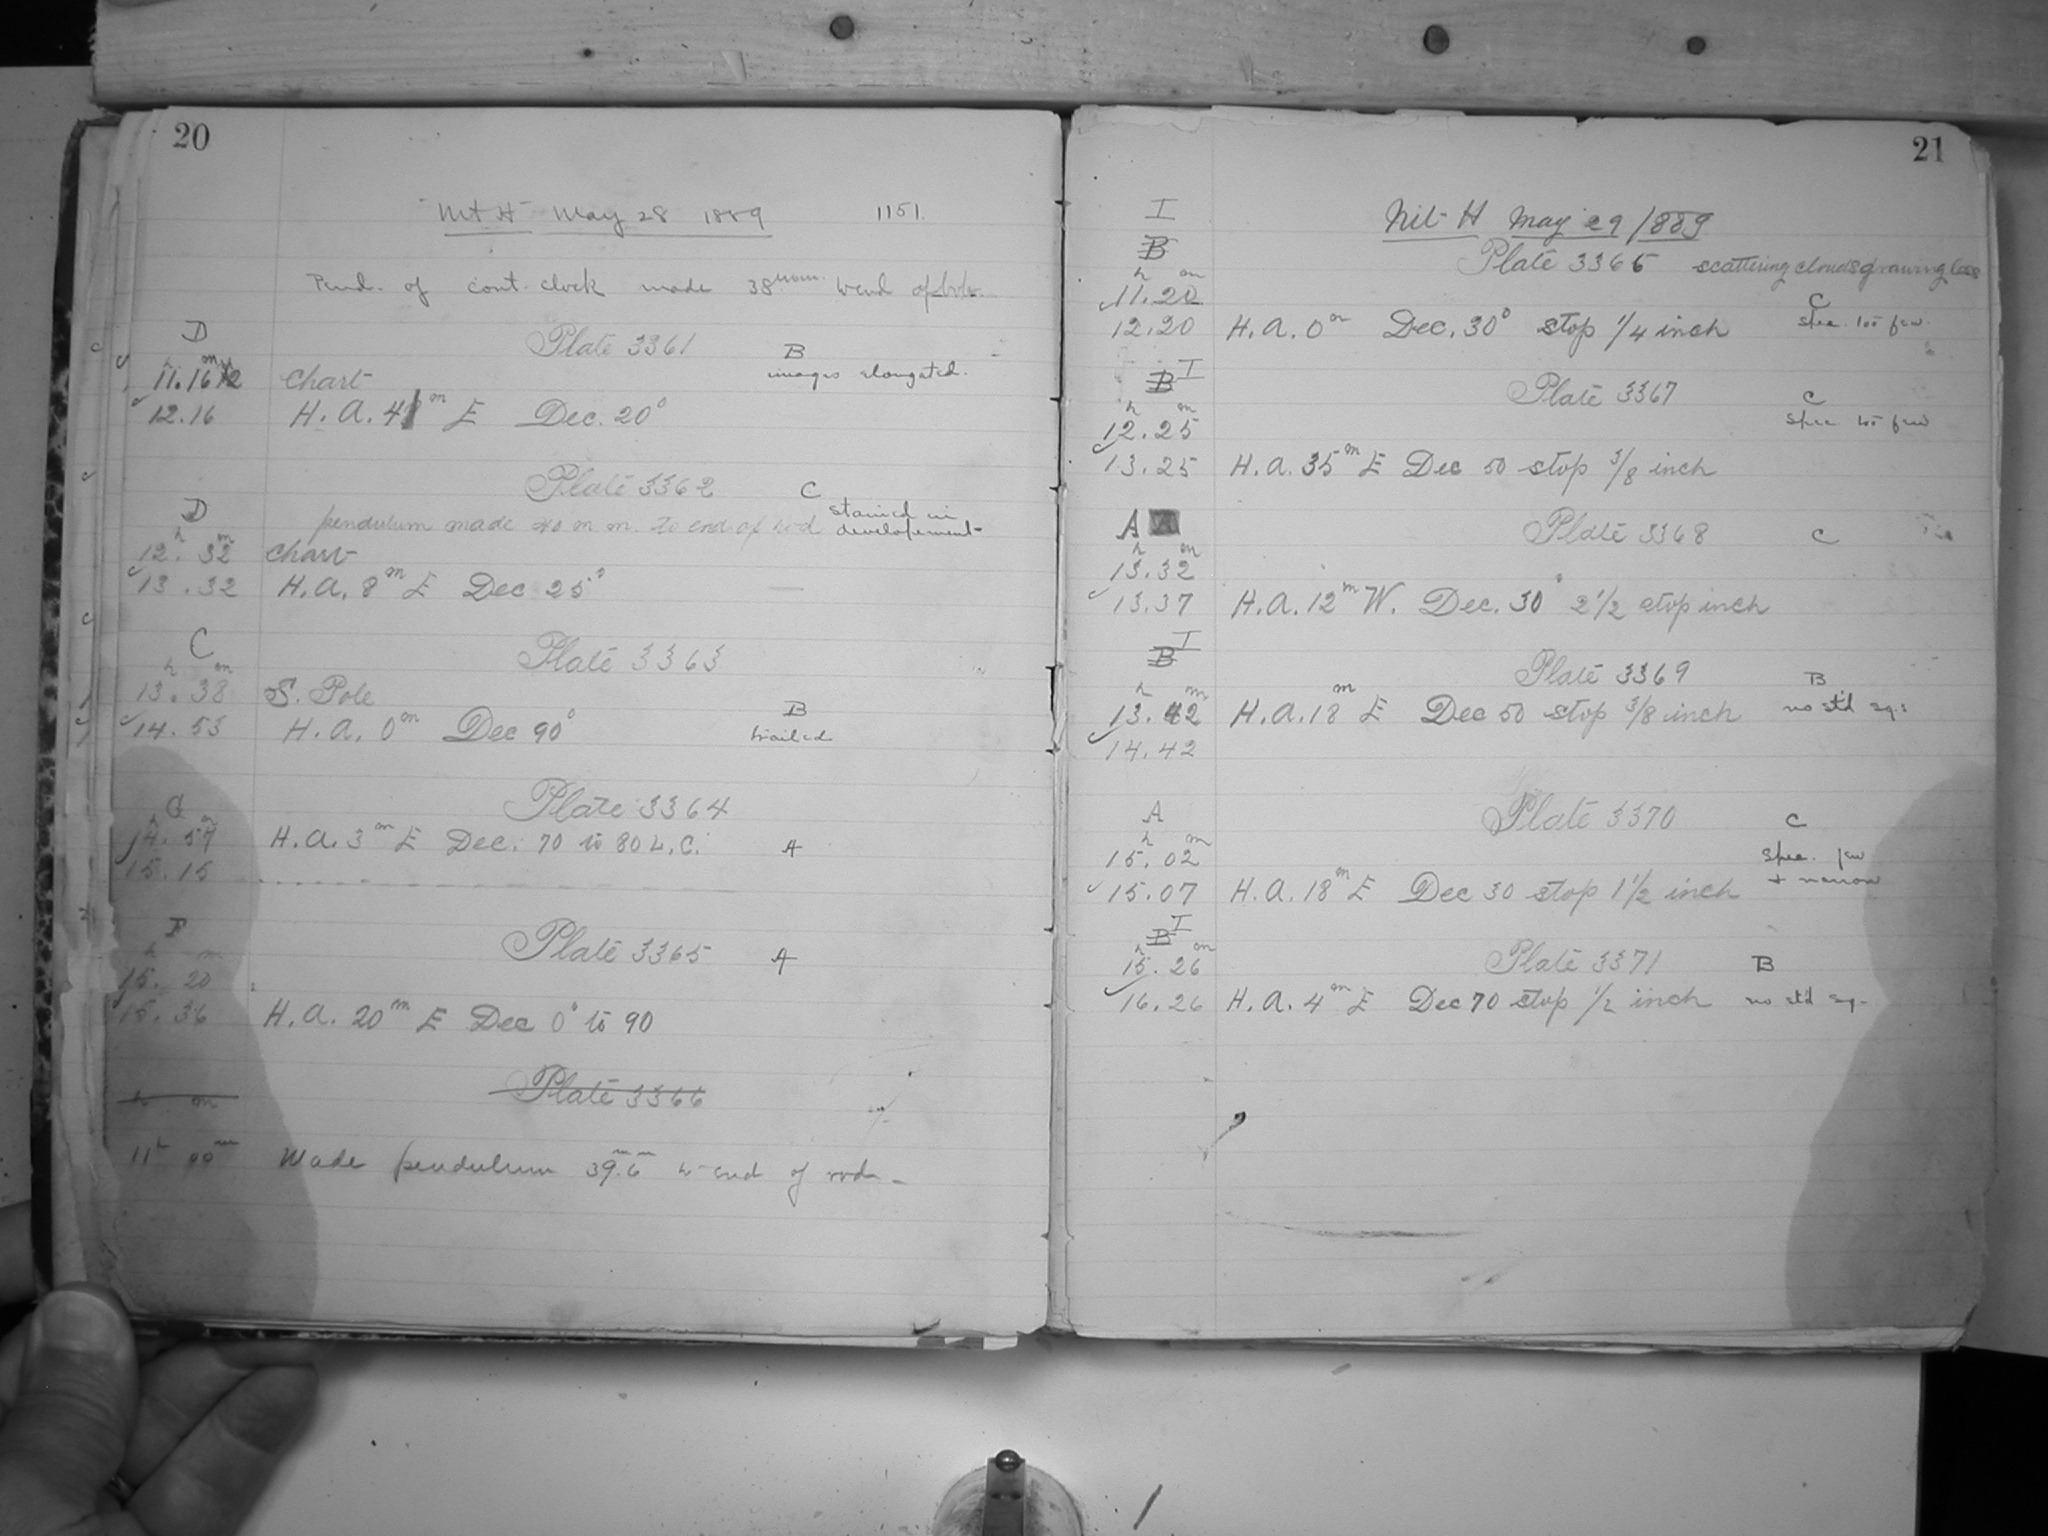 20
Mt H May 28 1889 1151
Pend. of cont. clock made 38 mm. to end of
D
Plate 3361 B
h m images elongated.
11.16 Chart
12.16 H. A. 4 m E Dec. 20°
Plate 3362 C
D stained in
pendulum made 40 m m. to end of rod developement
h m
12. 32 Chart
13. 32 H. A. 8 m E Dec 25°
C Plate 3363
h m
13. 38 S. Pole B
14. 53 H. A. 0 m Dec 90° trailed
Plate 3364
h m
14. 59 H. A. 3 m E Dec. 70 to 80 L. C. A
15. 15
F Plate 3365 A
h m
15. 20
15. 36 H. A. 20 m E Dec 0° to 90
Plate 3366
h m
11 h 00 m Made pendulum 39.6 m m to end of rod
21
I Mt H May 29 1889
B Plate 3366 scattering clouds growing less
h m
11. 20 C
12. 20 H. A. 0 m Dec. 30° stop 1/4 inch spec. too few
B I Plate 3367 C
h m spec. too few
12. 25
13. 25 H. A. 35 m E Dec 50 stop 3/8 inch
A Plate 3368 C
h m
13. 32
13. 37 H. A. 12 m W. Dec. 30° 2 1/2 stop inch
B I Plate 3369 B
h m
13. 42 H. A. 18 m E Dec 50 stop 3/8 inch no std sq.s
14. 42
A Plate 3370 C
h m
15. 02 spec. few
15. 07 H. A. 18 m E Dec 30 stop 1 1/2 inch + narrow
B I
h m
15. 26 Plate 3371 B
16. 26 H. A. 4 m E Dec 70 stop 1/2 inch no std sq.